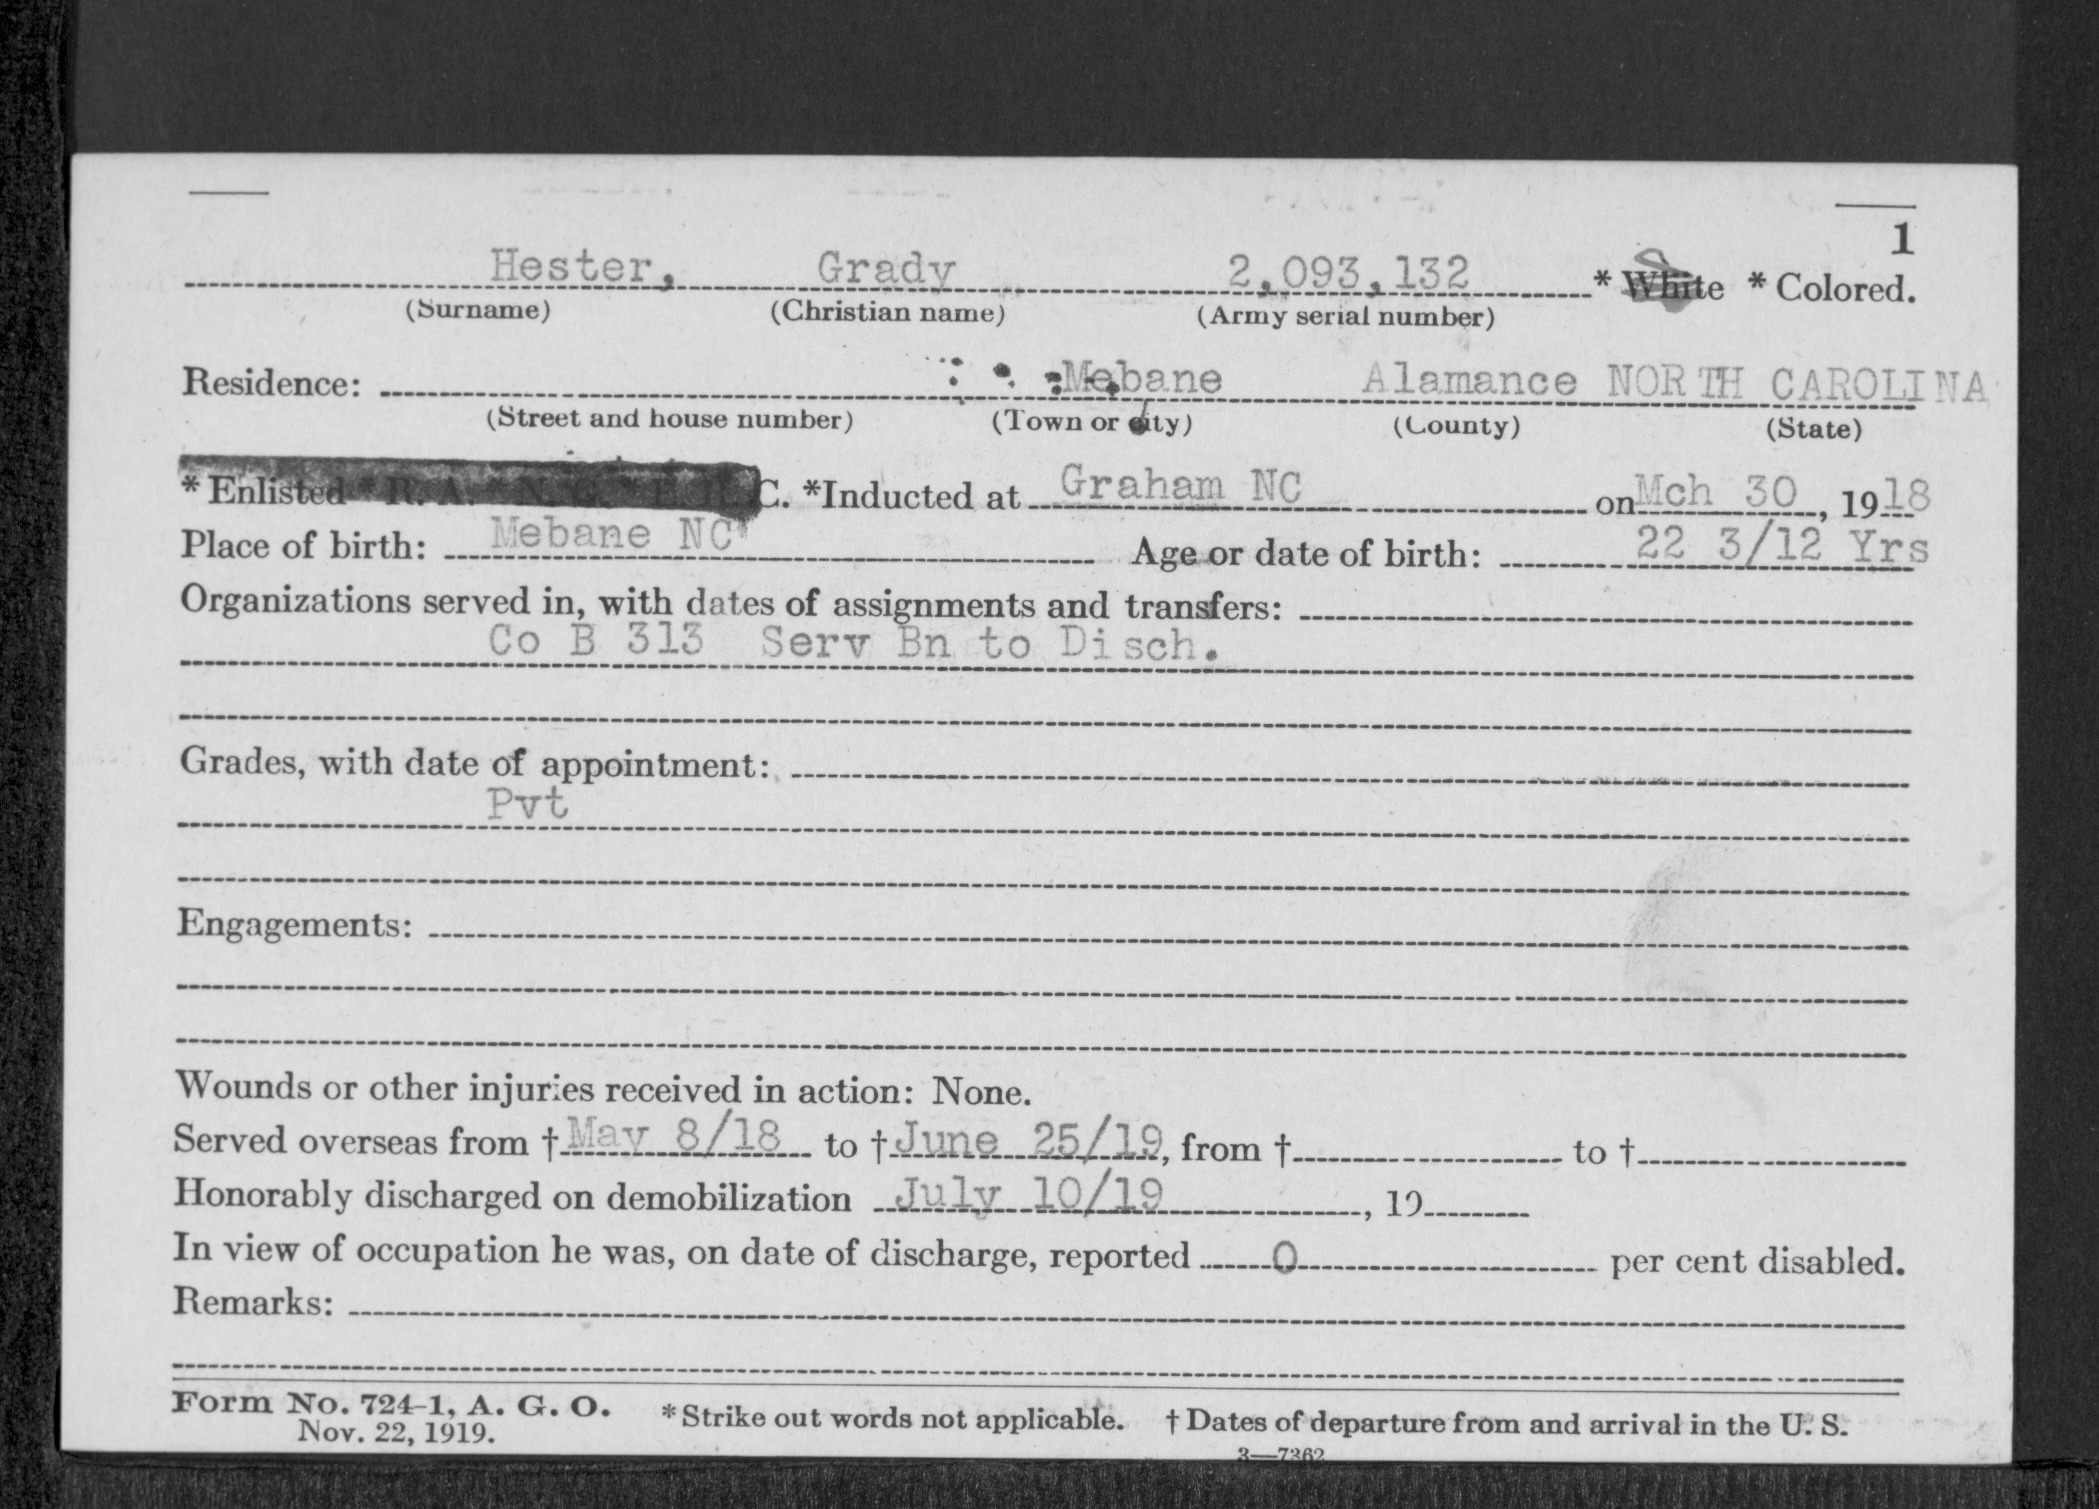 1
Hester, Grady 2,093,132 * White * Colored.
(Surname) (Christian name) (Army serial number)
Residence: Mebane Alamance NORTH CAROLINA
(Street and house number) (Town or city) (County) (State)
* Enlisted * R. A. * N. G. * E. R. C. *Inducted at Graham NC on Mch 30, 1918
Place of birth: Mebane NC Age or date of birth: 22 3/12 Yrs
Organizations served in, with dates of assignments and transfers:
Co B 313 Serv Bn to Disch.
Grades, with date of appointment:
Pvt
Engagements:
Wounds or other injuries received in action: None.
Served overseas from † May 8/18 to † June 25/19, from † to †
Honorably discharged on demobilization July 10/19, 19
In view of occupation he was, on date of discharge, reported 0 per cent disabled.
Remarks:
Form No. 724-1, A. G. O. * Strike out words not applicable. † Dates of departure from and arrival in the U. S.
Nov. 22, 1919.
3—7362